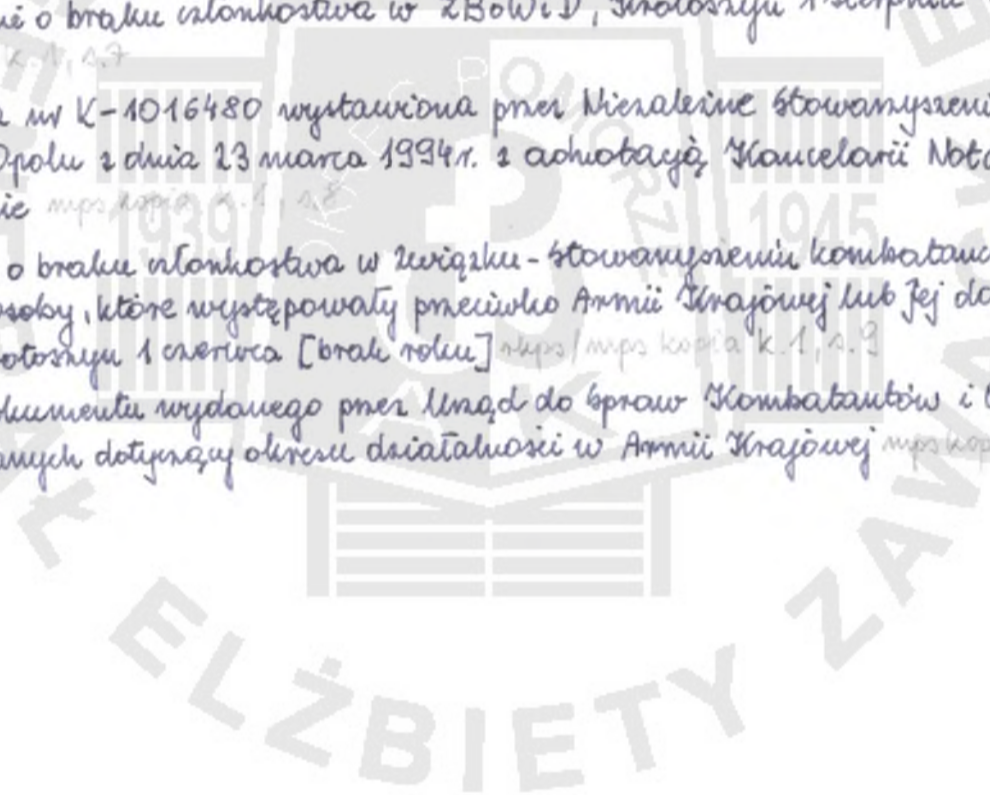 ie o braku członkostwa w ZBoWiD, Krotoszyn 1 sierpnia
k. 1, s. 7
a nr K-1016480 wystawiona przez Niezależne Stowarzyszeni
Opolu z dnia 23 marca 1994r. z adnotacją Kancelarii Nota
ie mps kopia k. 1, s. 8
o braku członkostwa w Związku - Stowarzyszeniu kombatanc
osoby, które występowały przeciwko Armii Krajowej lub Jej do
otoszyn 1 czerwca [brak roku] rkps/mps kopia k. 1, s. 9
okumentu wydanego przez Urząd do Spraw Kombatantów i
anych dotyczący okresu działalności w Armii Krajowej mps kop
POMORZE
1939
1945
AK
ELŻBIETY ZAWA